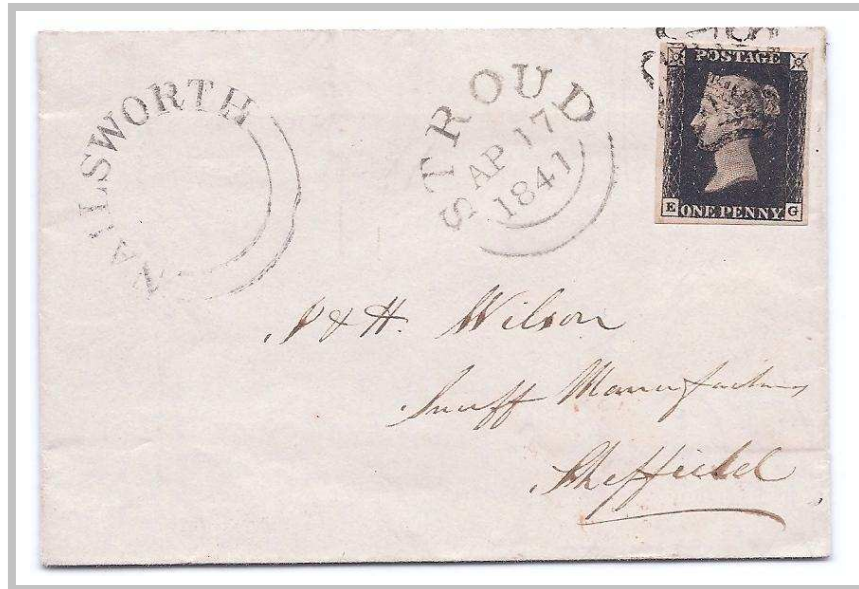 NAILSWORTH
STROUD
AP 17
1841
POSTAGE
E ONE PENNY G
& H. Wilson
Snuff Manufacturers
Sheffield